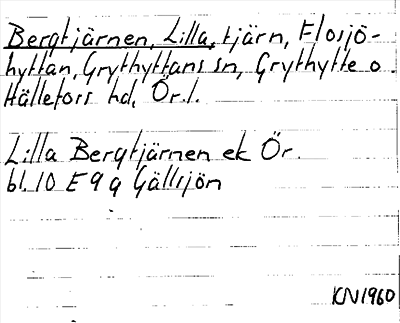 Bergtjärnen, Lilla, tjärn, Flosjö-
hyttan, Grythyttans sn, Grythytte o.
Hällefors hd, Ör.l.
Lilla Bergtjärnen ek Ör.
bl. 10 E 9 g Gällsjön
KN1960